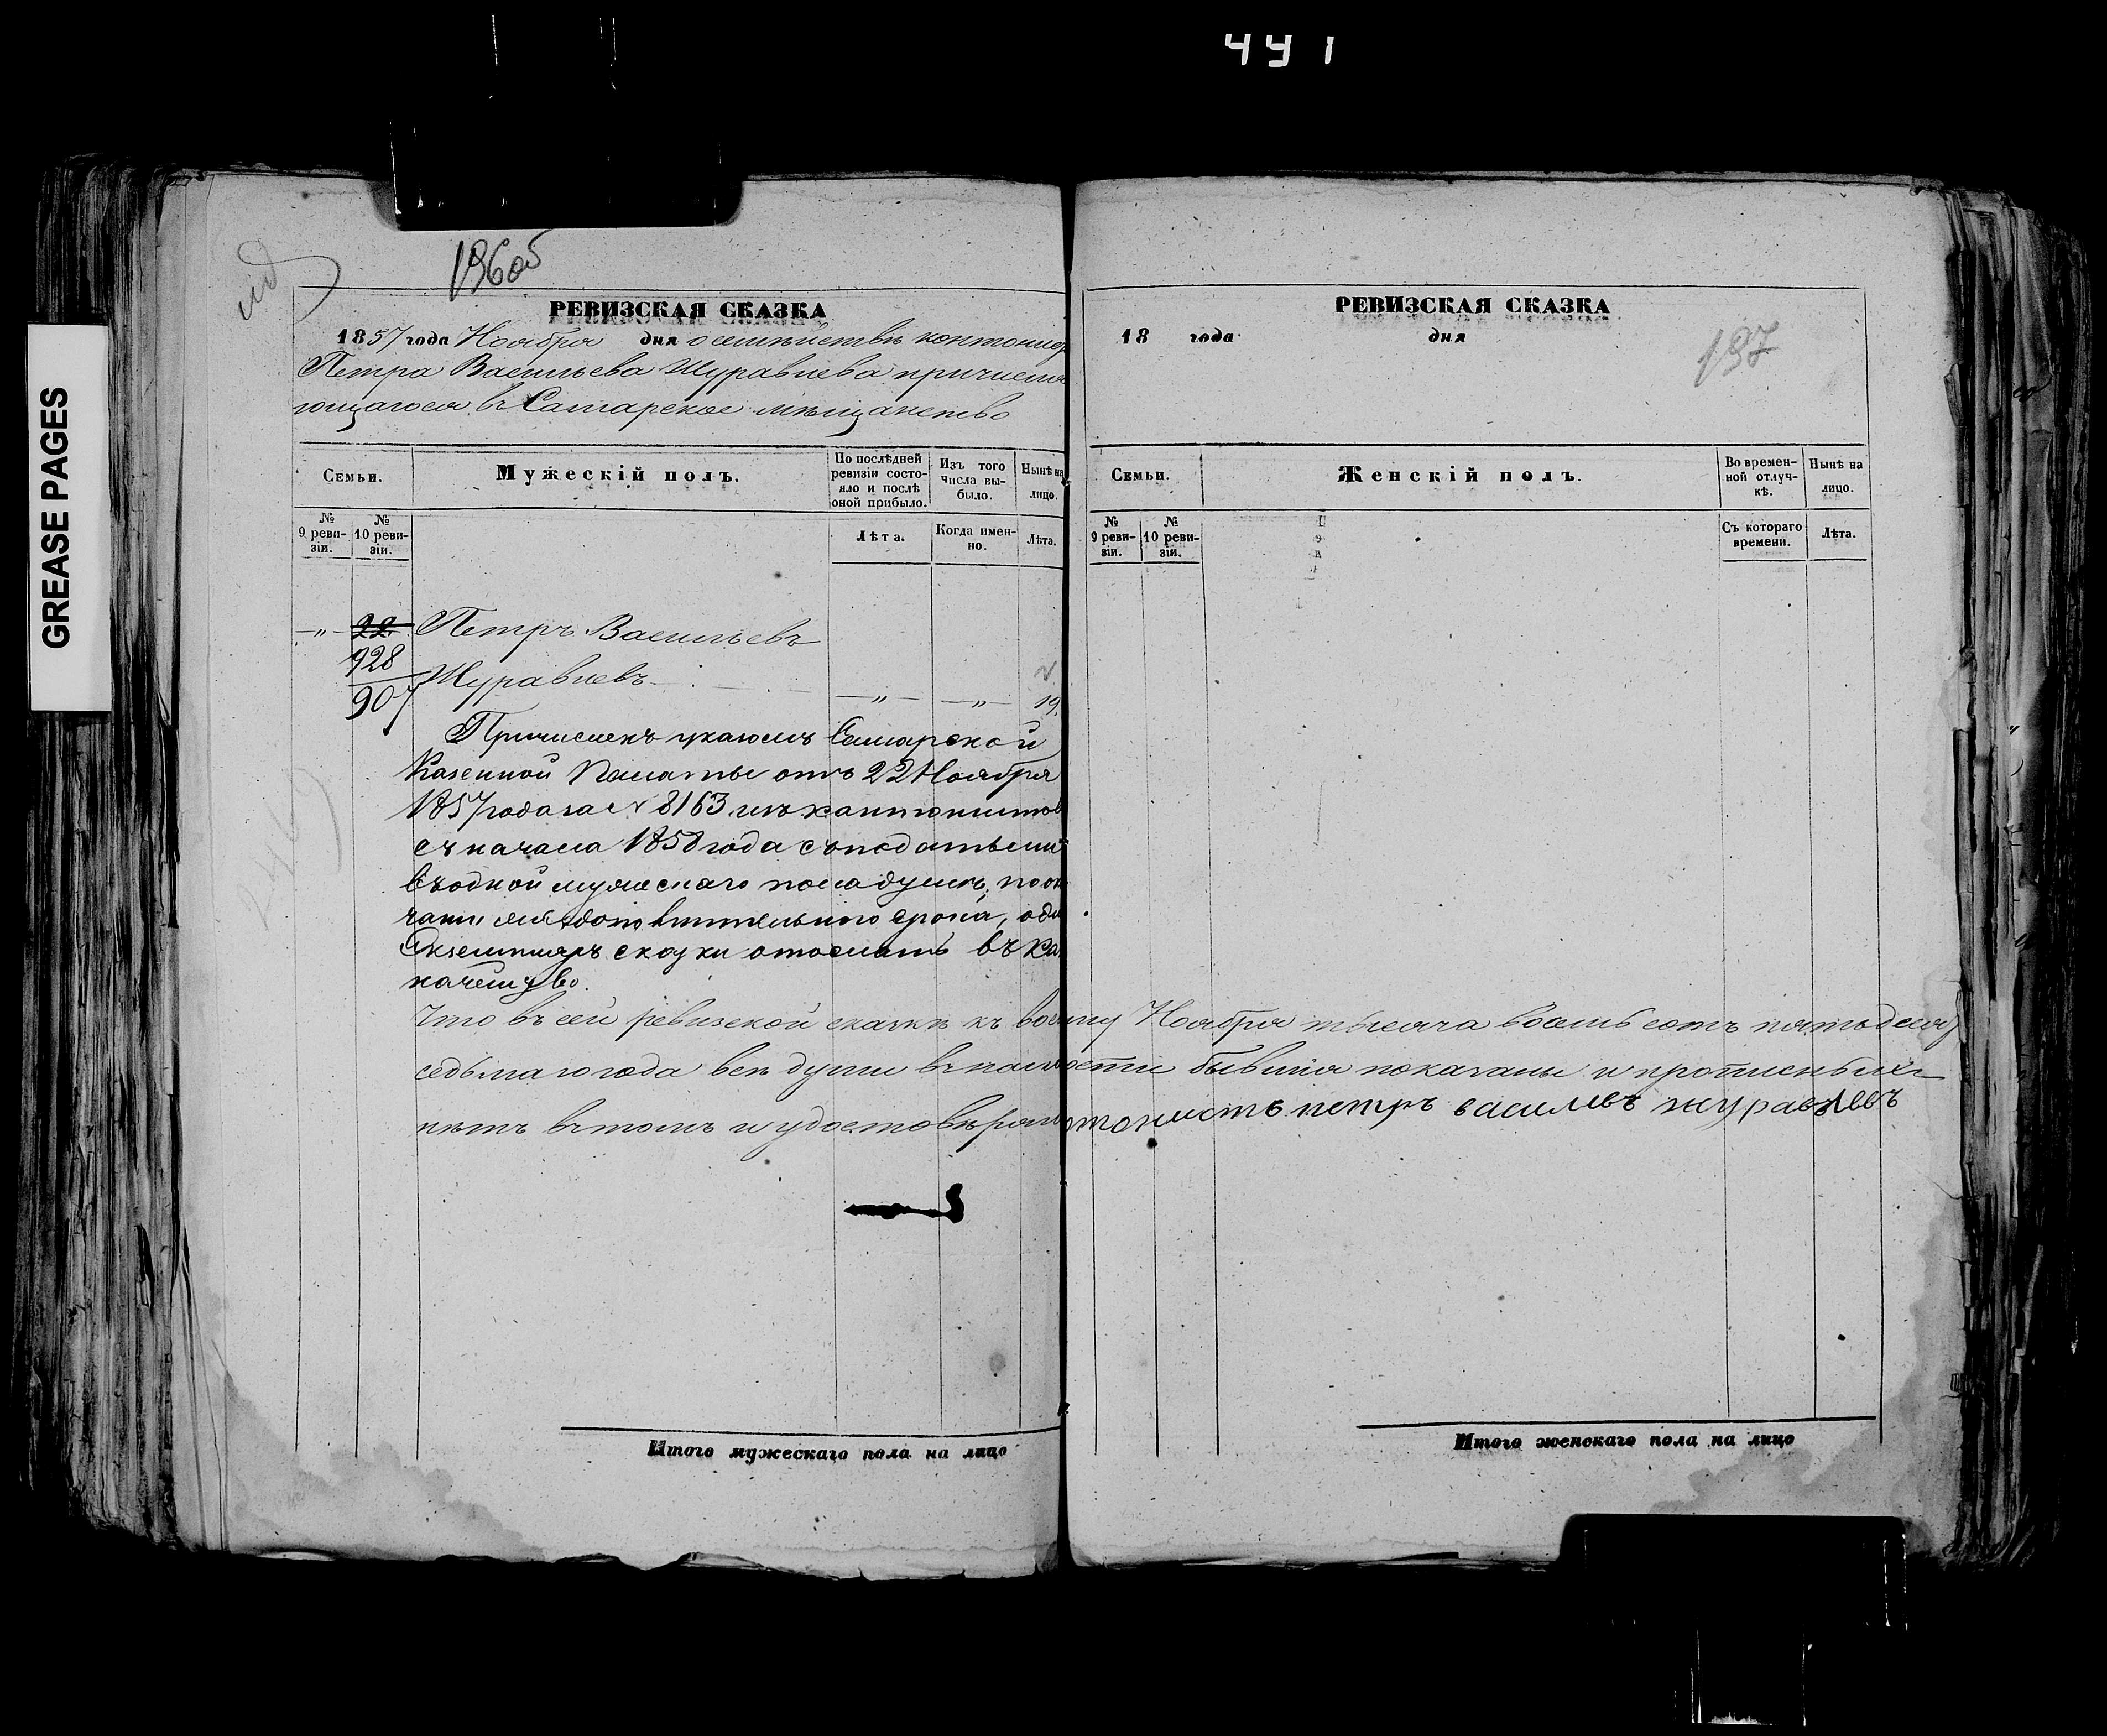 441
GREASE PAGES
196об
РЕВИЗСКАЯ СКАЗКА
1857 года Ноября дня о семѣйствѣ контонис
Петра Васильева Журавлева причисля
ющагося въ Самарское мѣщанство
Семьи.
Мужескій полъ.
По послѣдней ревизіи состояло и послѣ оной прибыло.
Изъ того числа выбыло.
Нынѣ на лицо.
№ 9 ревизіи.
№ 10 ревизіи.
Лѣта.
Когда именно.
Лѣта.
—„— 22. Петръ Васильевъ
928
Журавлевъ —„— —„— 19.
907
Причисленъ указомъ Самарской
Казенной Палаты отъ 22 Ноября
1857 года за № 8163 изъ кантонистов
съ начала 1858 года съ податьми
въ одной мужескаго пола душѣ, по
срока,
Экземпляръ сказки отослать въ Каз
начейство.
Что въ сей ревизской сказкѣ къ Ноября тысяча восемь сотъ пятьдеся
седьмаго года всѣ души въ наличности бывшія показаны и прописныхъ
нѣтъ въ томъ и удостовѣряю
тонистъ петръ василевъ журавлевъ
Итого мужескаго пола на лицо
РЕВИЗСКАЯ СКАЗКА
197
18 года дня
Семьи.
Женскій полъ.
Во временной отлучкѣ.
Нынѣ на лицо.
№ 9 ревизіи.
№ 10 ревизіи.
Съ котораго времени.
Лѣта.
Итого женскаго пола на лицо